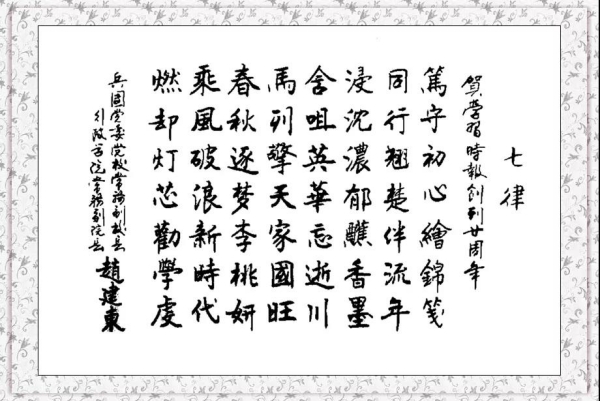 七律
賀學習時報創刊廿周年
篤守初心繪錦箋
同行翹楚伴流年
浸沈濃郁醮香墨
含咀英華忘逝川
馬列擎天家國旺
春秋逐梦李桃妍
乘風破浪新時代
燃却灯芯勸學虔
兵團党委党校常務副校長
行政学院常務副院長
趙建東